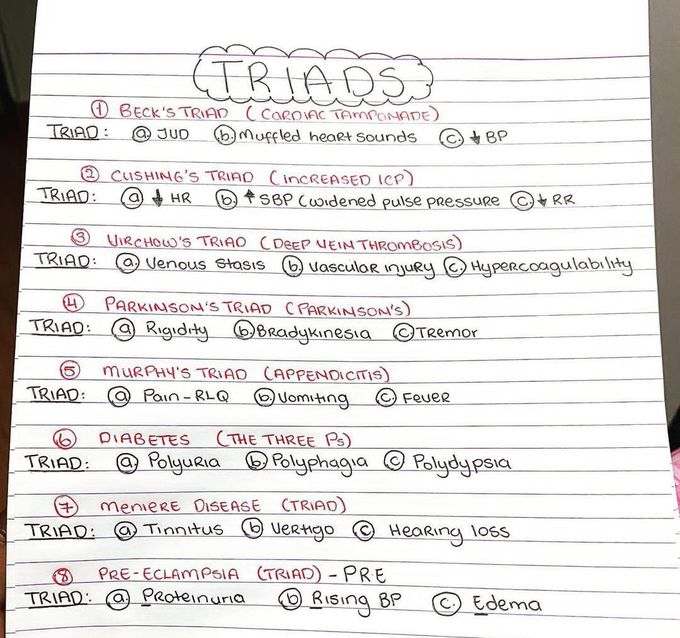 TRIADS
① BECK'S TRIAD (CARDIAC TAMPONADE)
TRIAD: ⓐ JUD ⓑ Muffled heart sounds ⓒ ↓ BP
② CUSHING'S TRIAD (INCREASED ICP)
TRIAD: ⓐ ↓ HR ⓑ ↑ SBP (widened pulse pressure ⓒ ↓ RR
③ VIRCHOW'S TRIAD (DEEP VEIN THROMBOSIS)
TRIAD: ⓐ Venous stasis ⓑ Vascular injury ⓒ Hypercoagulability
④ PARKINSON'S TRIAD (PARKINSON'S)
TRIAD: ⓐ Rigidity ⓑ Bradykinesia ⓒ Tremor
⑤ MURPHY'S TRIAD (APPENDICITIS)
TRIAD: ⓐ Pain-RLQ ⓑ Vomiting ⓒ Fever
⑥ DIABETES (THE THREE Ps)
TRIAD: ⓐ Polyuria ⓑ Polyphagia ⓒ Polydypsia
⑦ MENIERE DISEASE (TRIAD)
TRIAD: ⓐ Tinnitus ⓑ Vertigo ⓒ Hearing loss
⑧ PRE-ECLAMPSIA (TRIAD) - PRE
TRIAD: ⓐ Proteinuria ⓑ Rising BP ⓒ Edema